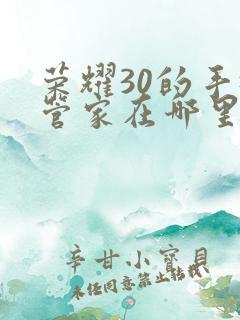 荣耀30的手
管家在哪里
辛甘小寶貝
未经同意禁止转载